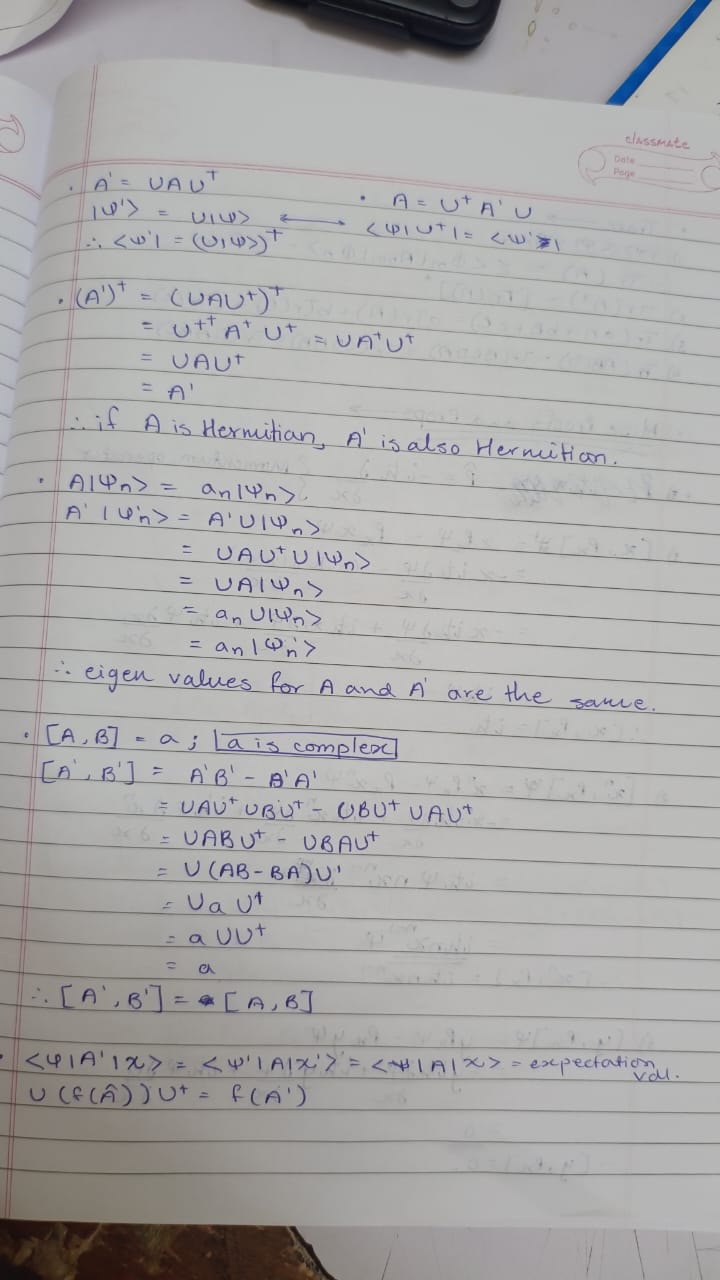 classmate
Date
Page
• A' = UAU†
• A = U† A' U
|ψ'> = U|ψ> ⟷ <ψ|U†| = <ψ'|
∴ <ψ'| = (U|ψ>)†
• (A')† = (UAU†)†
= U†† A† U† = UA†U†
= UAU†
= A'
∴ if A is Hermitian, A' is also Hermitian.
• A|ψn> = an|ψn>
A' |ψ'n> = A'U|ψn>
= UAU†U|ψn>
= UA|ψn>
= an U|ψn>
= an|ψ'n>
∴ eigen values for A and A' are the same.
• [A, B] = a ; a is complex
[A', B'] = A'B' - B'A'
= UAU† UBU† - UBU† UAU†
= UABU† - UBAU†
= U(AB-BA)U'
= UaU†
= a UU†
= a
∴ [A', B'] = [A, B]
• <ψ|A'|χ> = <ψ'|A|χ'> = <ψ|A|χ> = expectation
val.
U (f(Â)) U† = f(A')